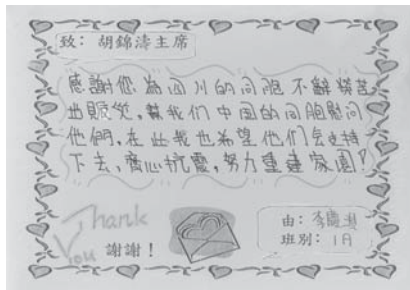 致：胡錦濤主席
感謝您為四川的同胞不辭勞苦
出賑災，幫我们中国的同胞慰问
他們，在此我也希望他们会支持
下去，齊心抗震，努力重建家園！
Thank
You 謝謝！
由：李
班別：1A